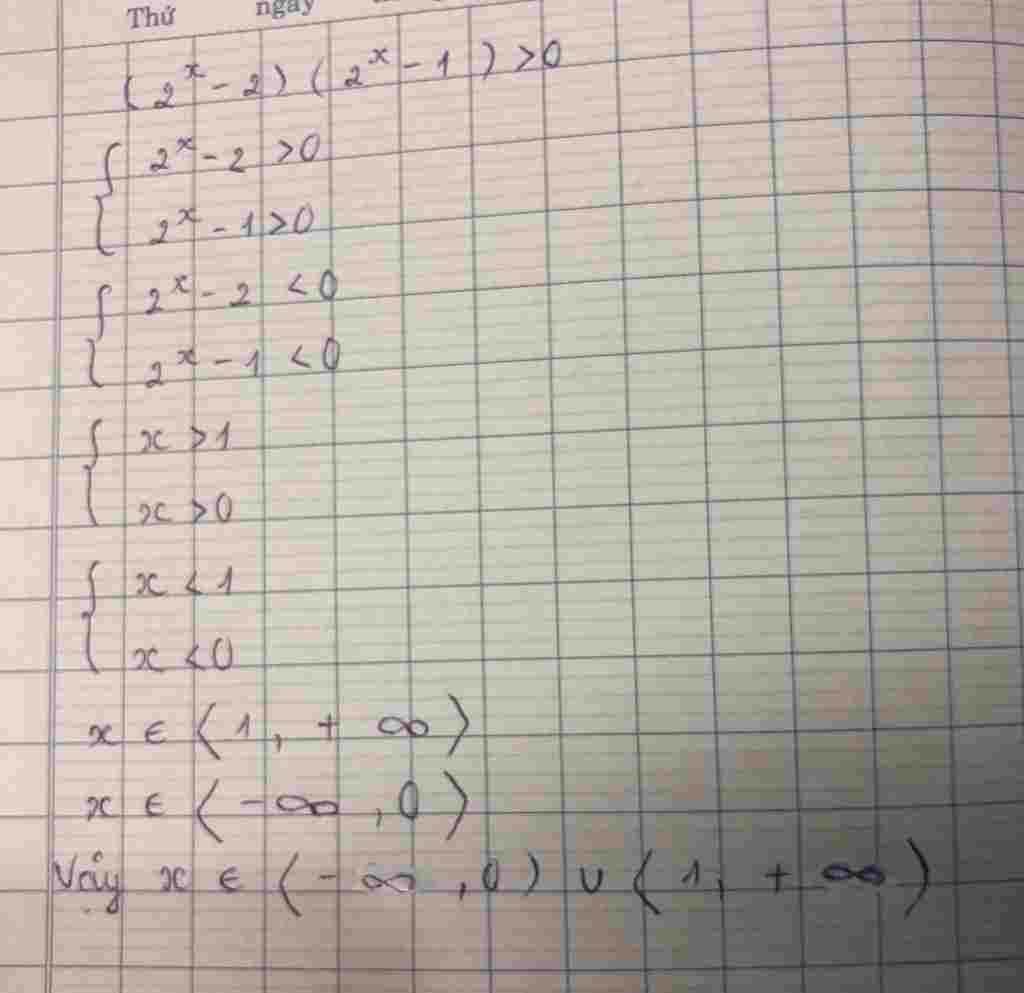 Thứ ngày
(2^x - 2)(2^x - 1) > 0
{ 2^x - 2 > 0
2^x - 1 > 0
{ 2^x - 2 < 0
2^x - 1 < 0
{ x > 1
x > 0
{ x < 1
x < 0
x ∈ (1, + ∞)
x ∈ (-∞, 0)
Vậy x ∈ (- ∞, 0) ∪ (1, + ∞)